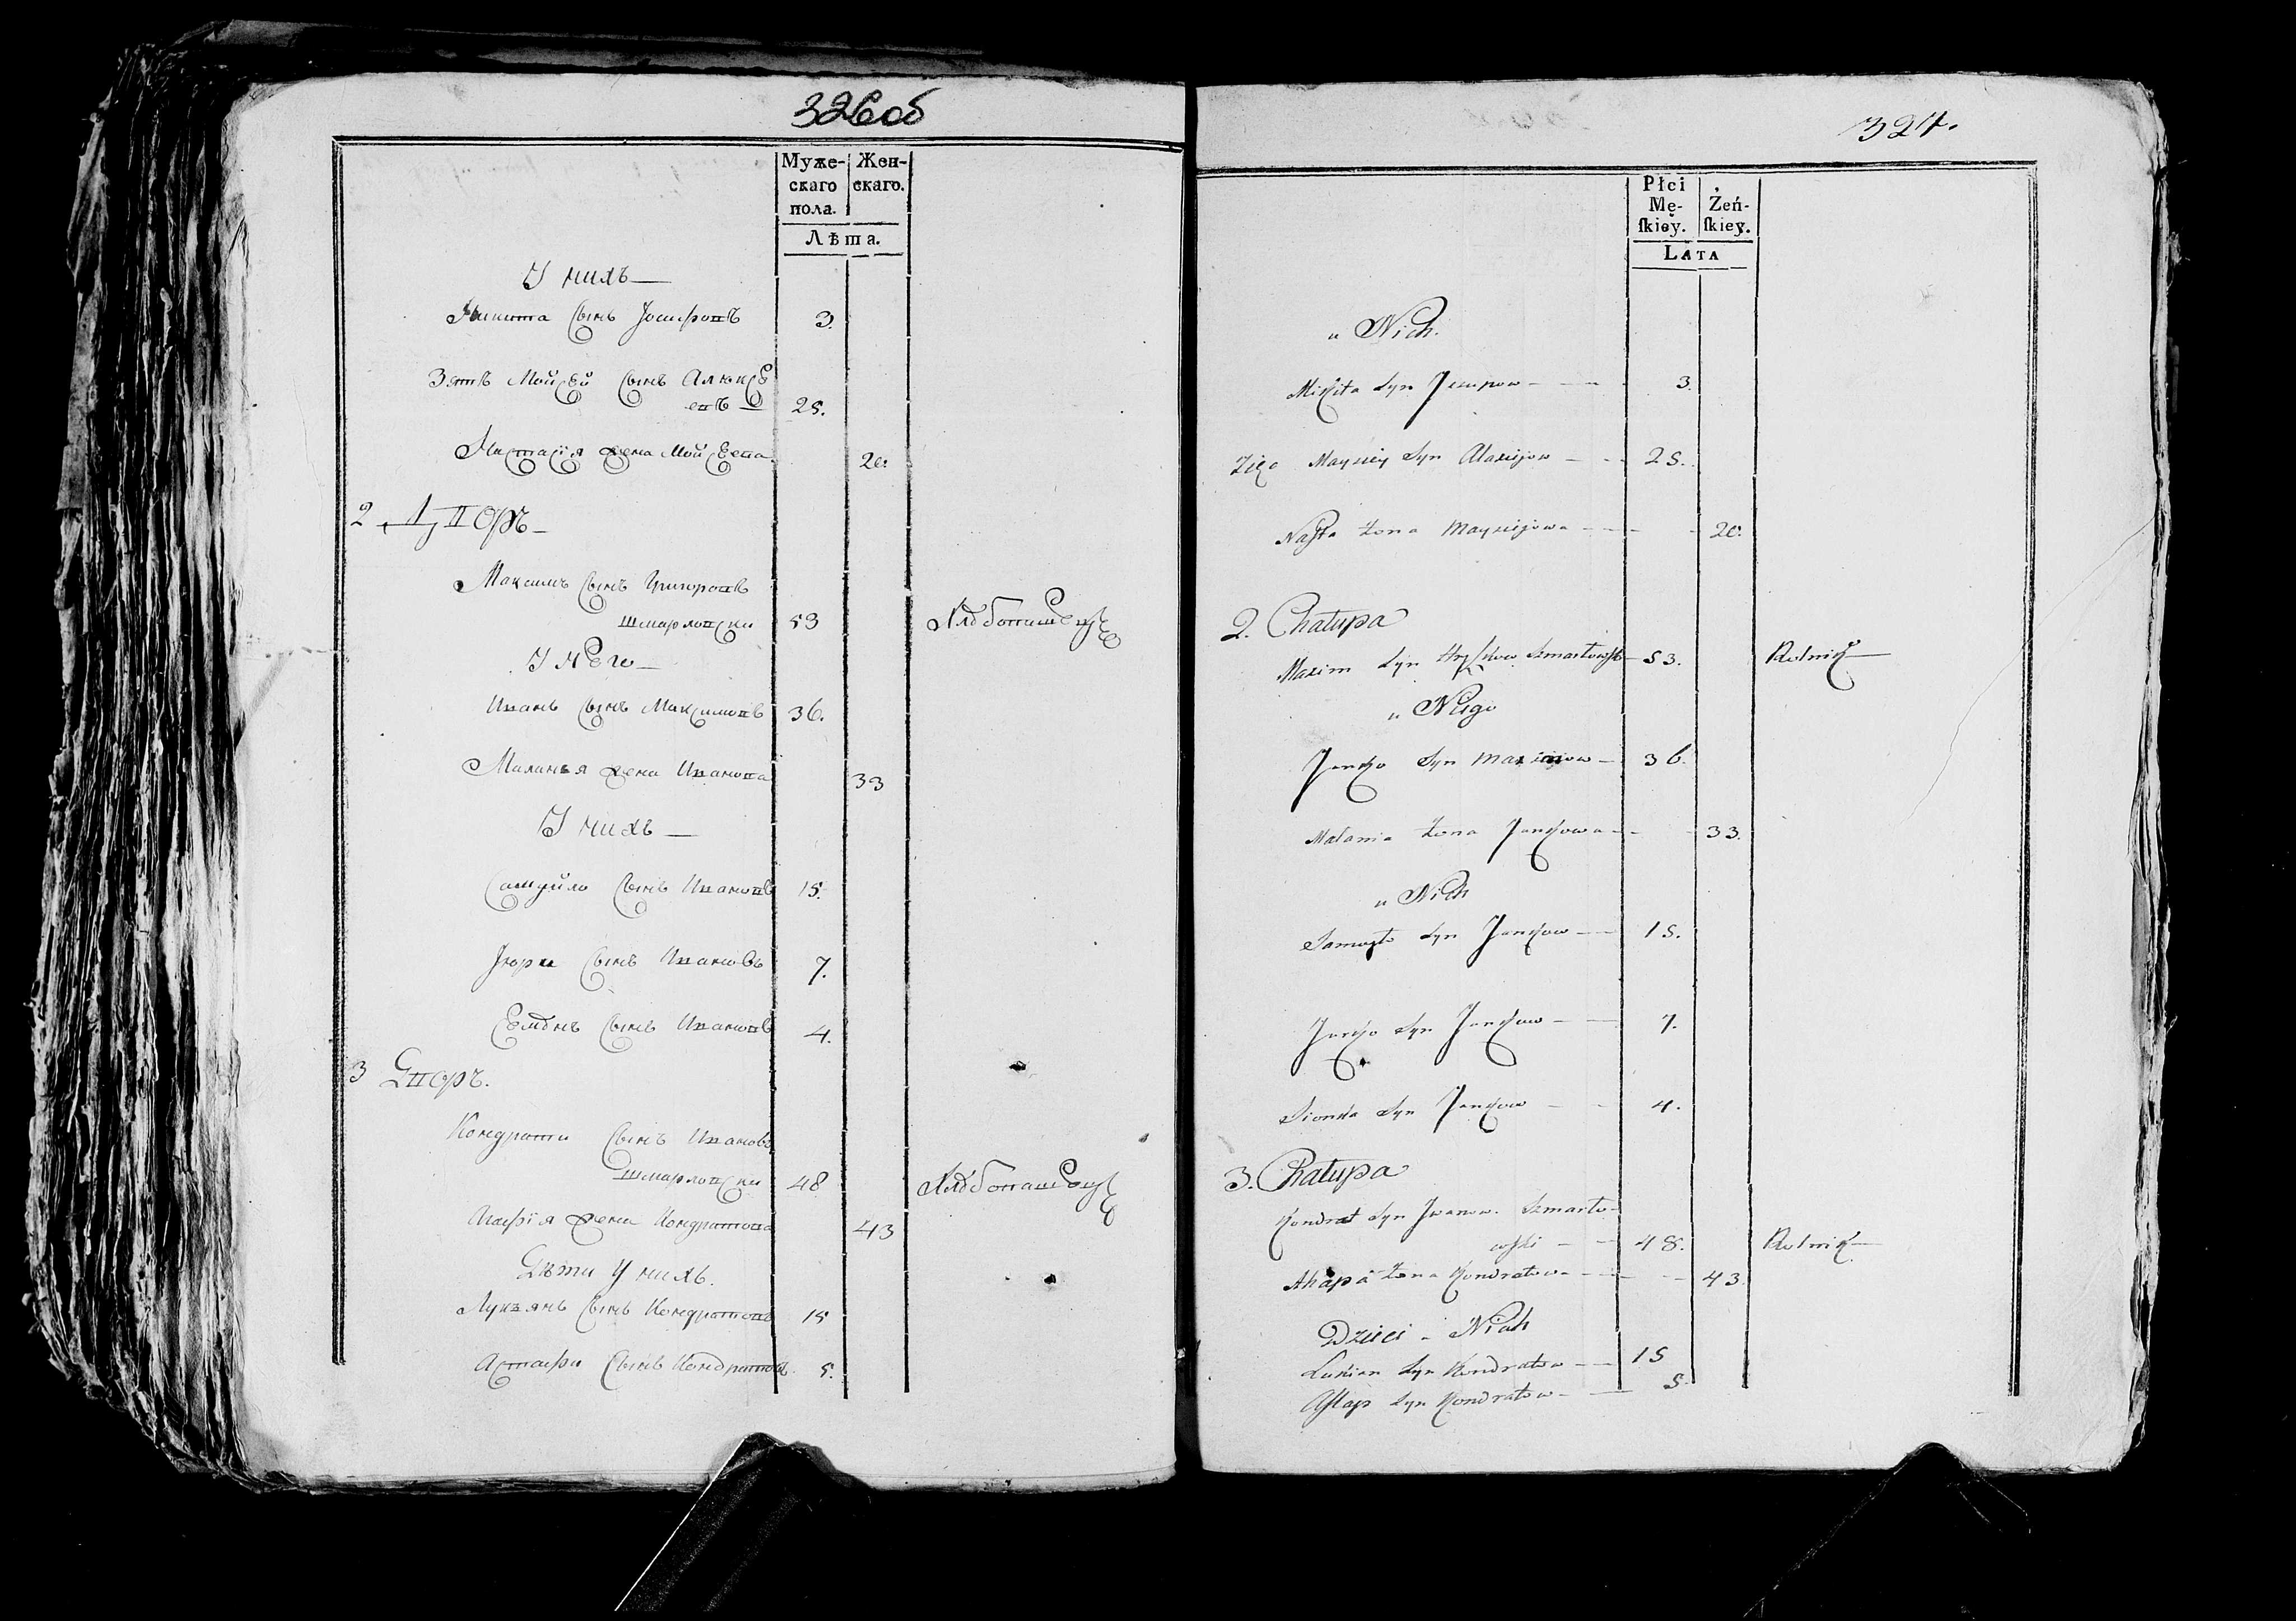 326об
Муже-
скаго
пола.
Жен-
скаго.
Лѣта.
У нихъ
Никита сынъ Јосифовъ 3.
Зять Мойсей сынъ Алексѣ
евъ 25.
Настасія жена Мойсеева 20.
2 Дворъ
Максимъ сынъ Григоровъ
Шмарловски 53
У него
Иванъ сынъ Максимовъ 36.
Маланья жена Иванова 33
У нихъ
Самуйло сынъ Ивановъ 15.
Јюри сынъ Ивановъ 7.
Семенъ сынъ Ивановъ 4.
3 Дворъ.
Кондрати сынъ Ивановъ
Шмарловски 48
Агафія жена Кондратова 43
Дѣти у нихъ.
Лукьянъ сынъ Кондратовъ 15
Астафи сынъ Кондратовъ 5.
327.
Płci
Mę-
ſkieÿ.
Żeń-
ſkieÿ.
LATA
u Nich.
Mikita Syn Jezupow 3.
Zięć Maysiey Syn Alaxiejow 25.
Nasta żona Maysiejowa 20.
2. Chałupa
Maxim Syn Hryszkow Szmarłowski 53. Rolnik
u Niego
Janko Syn Maximow 36.
Małania żona Jankowa 33.
u Nich
Samuyło Syn Jankow 15.
Jurko Syn Jankow 7.
Sionka Syn Jankow 4.
3. Chałupa
Kondrat Syn Iwanow. Szmarło-
wski 48. Rolnik
Ahapa żona Kondratowa 43.
Dzieci u Nich
Łukian Syn Kondratow 15
Astap Syn Kondratow 5.